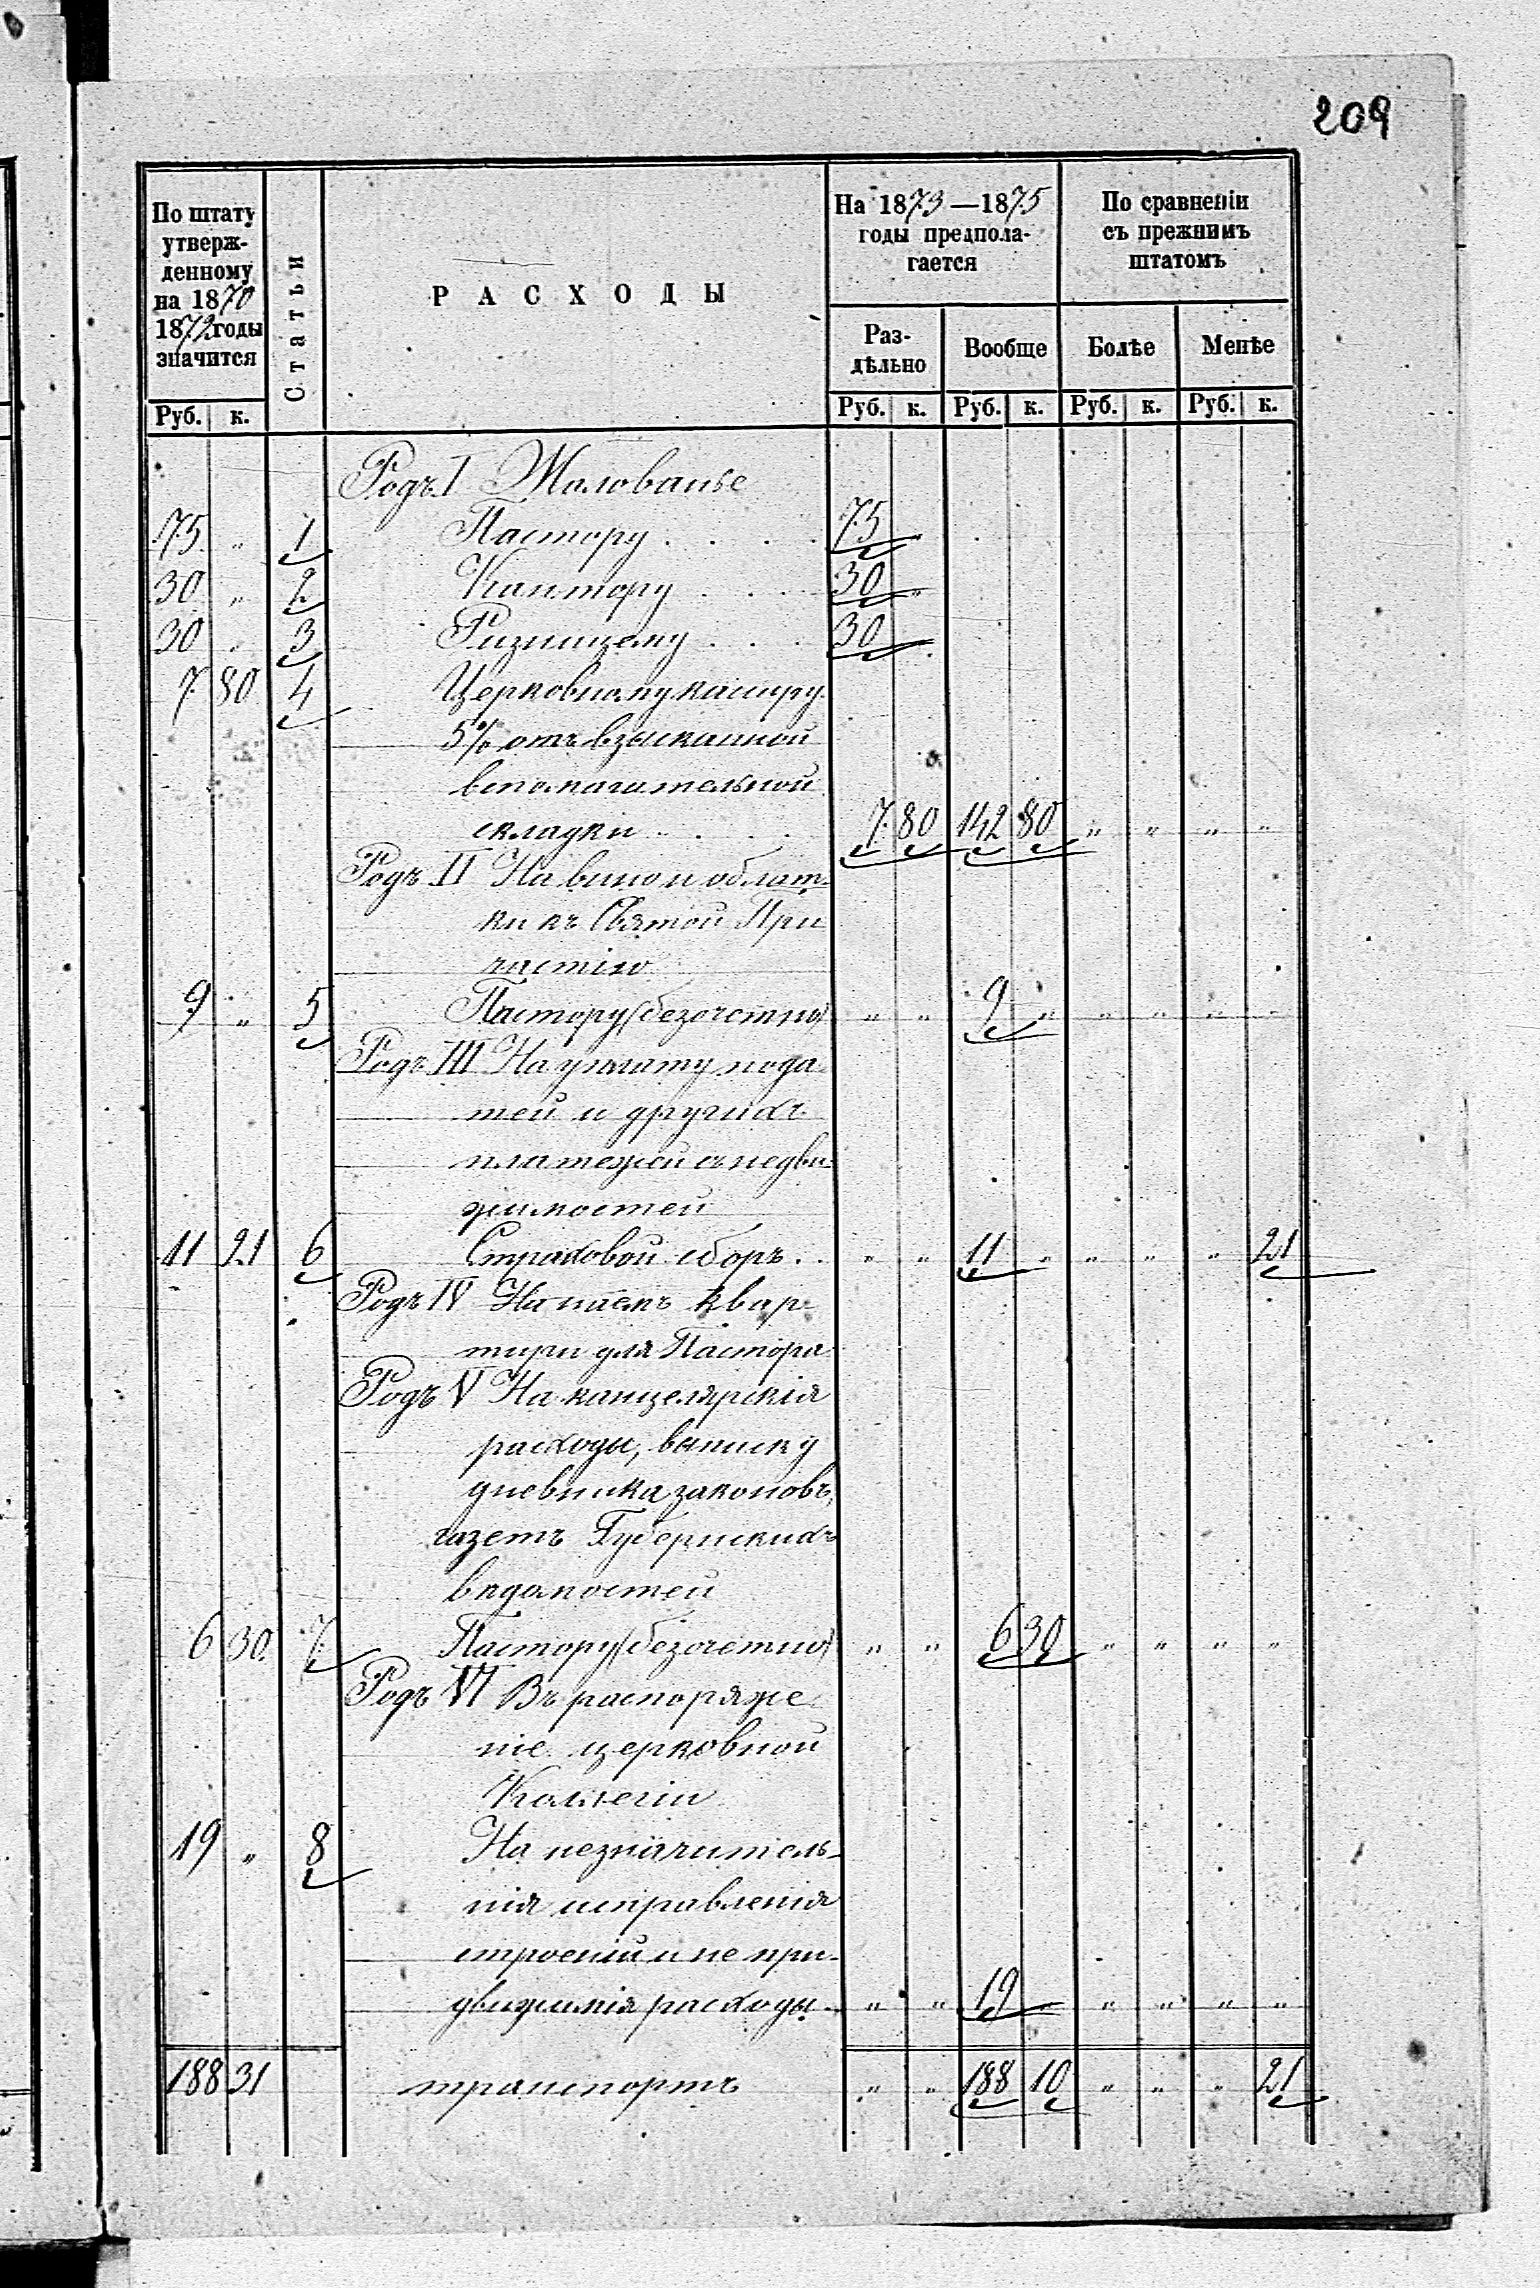 209
По штату
утверж-
денному
на 1870
1872 годы
значится
Статьи
РАСХОДЫ
На 1873—1875
годы предпола-
гается
По сравненіи
съ прежнимъ
штатомъ
Раз-
дѣльно
Вообще
Болѣе
Менѣе
Руб. к. Руб. к. Руб. к. Руб. к. Руб. к.
Родъ I Жалованье
75 „ 1 Пастору . . . . 75 „
30 „ 2 Кантору . . . 30 „
30 „ 3 Ризничему . . . 30 „
7 80 4 Церковному кассиру
5% отъ взысканной
вспомагательной
складки . . . . 7 80 142 80 „ „ „ „
Родъ II На вино и облат-
ки къ Святой При
частію
9 „ 5 Пастору (безочетно) „ „ 9 „ „ „ „ „
Родъ III На уплату пода
тей и другихъ
платежей съ недви-
жимостей
11 21 6 Страховой сборъ . . „ „ 11 „ „ „ „ 21
Родъ IV На наемъ квар-
тиры для Пастора
Родъ V На канцелярскія
расходы, выписку
дневника законовъ,
газетъ Губернскихъ
вѣдомостей
6 30 7 Пастору (безочетно) „ „ 6 30 „ „ „ „
Родъ VI Въ распоряже-
ніе церковной
Коллегіи
19 „ 8 На незначитель-
нія исправленія
строеній и не при-
двидимія расходы „ „ 19 „ „ „ „
188 31 транспортъ „ „ 188 10 „ „ „ 21